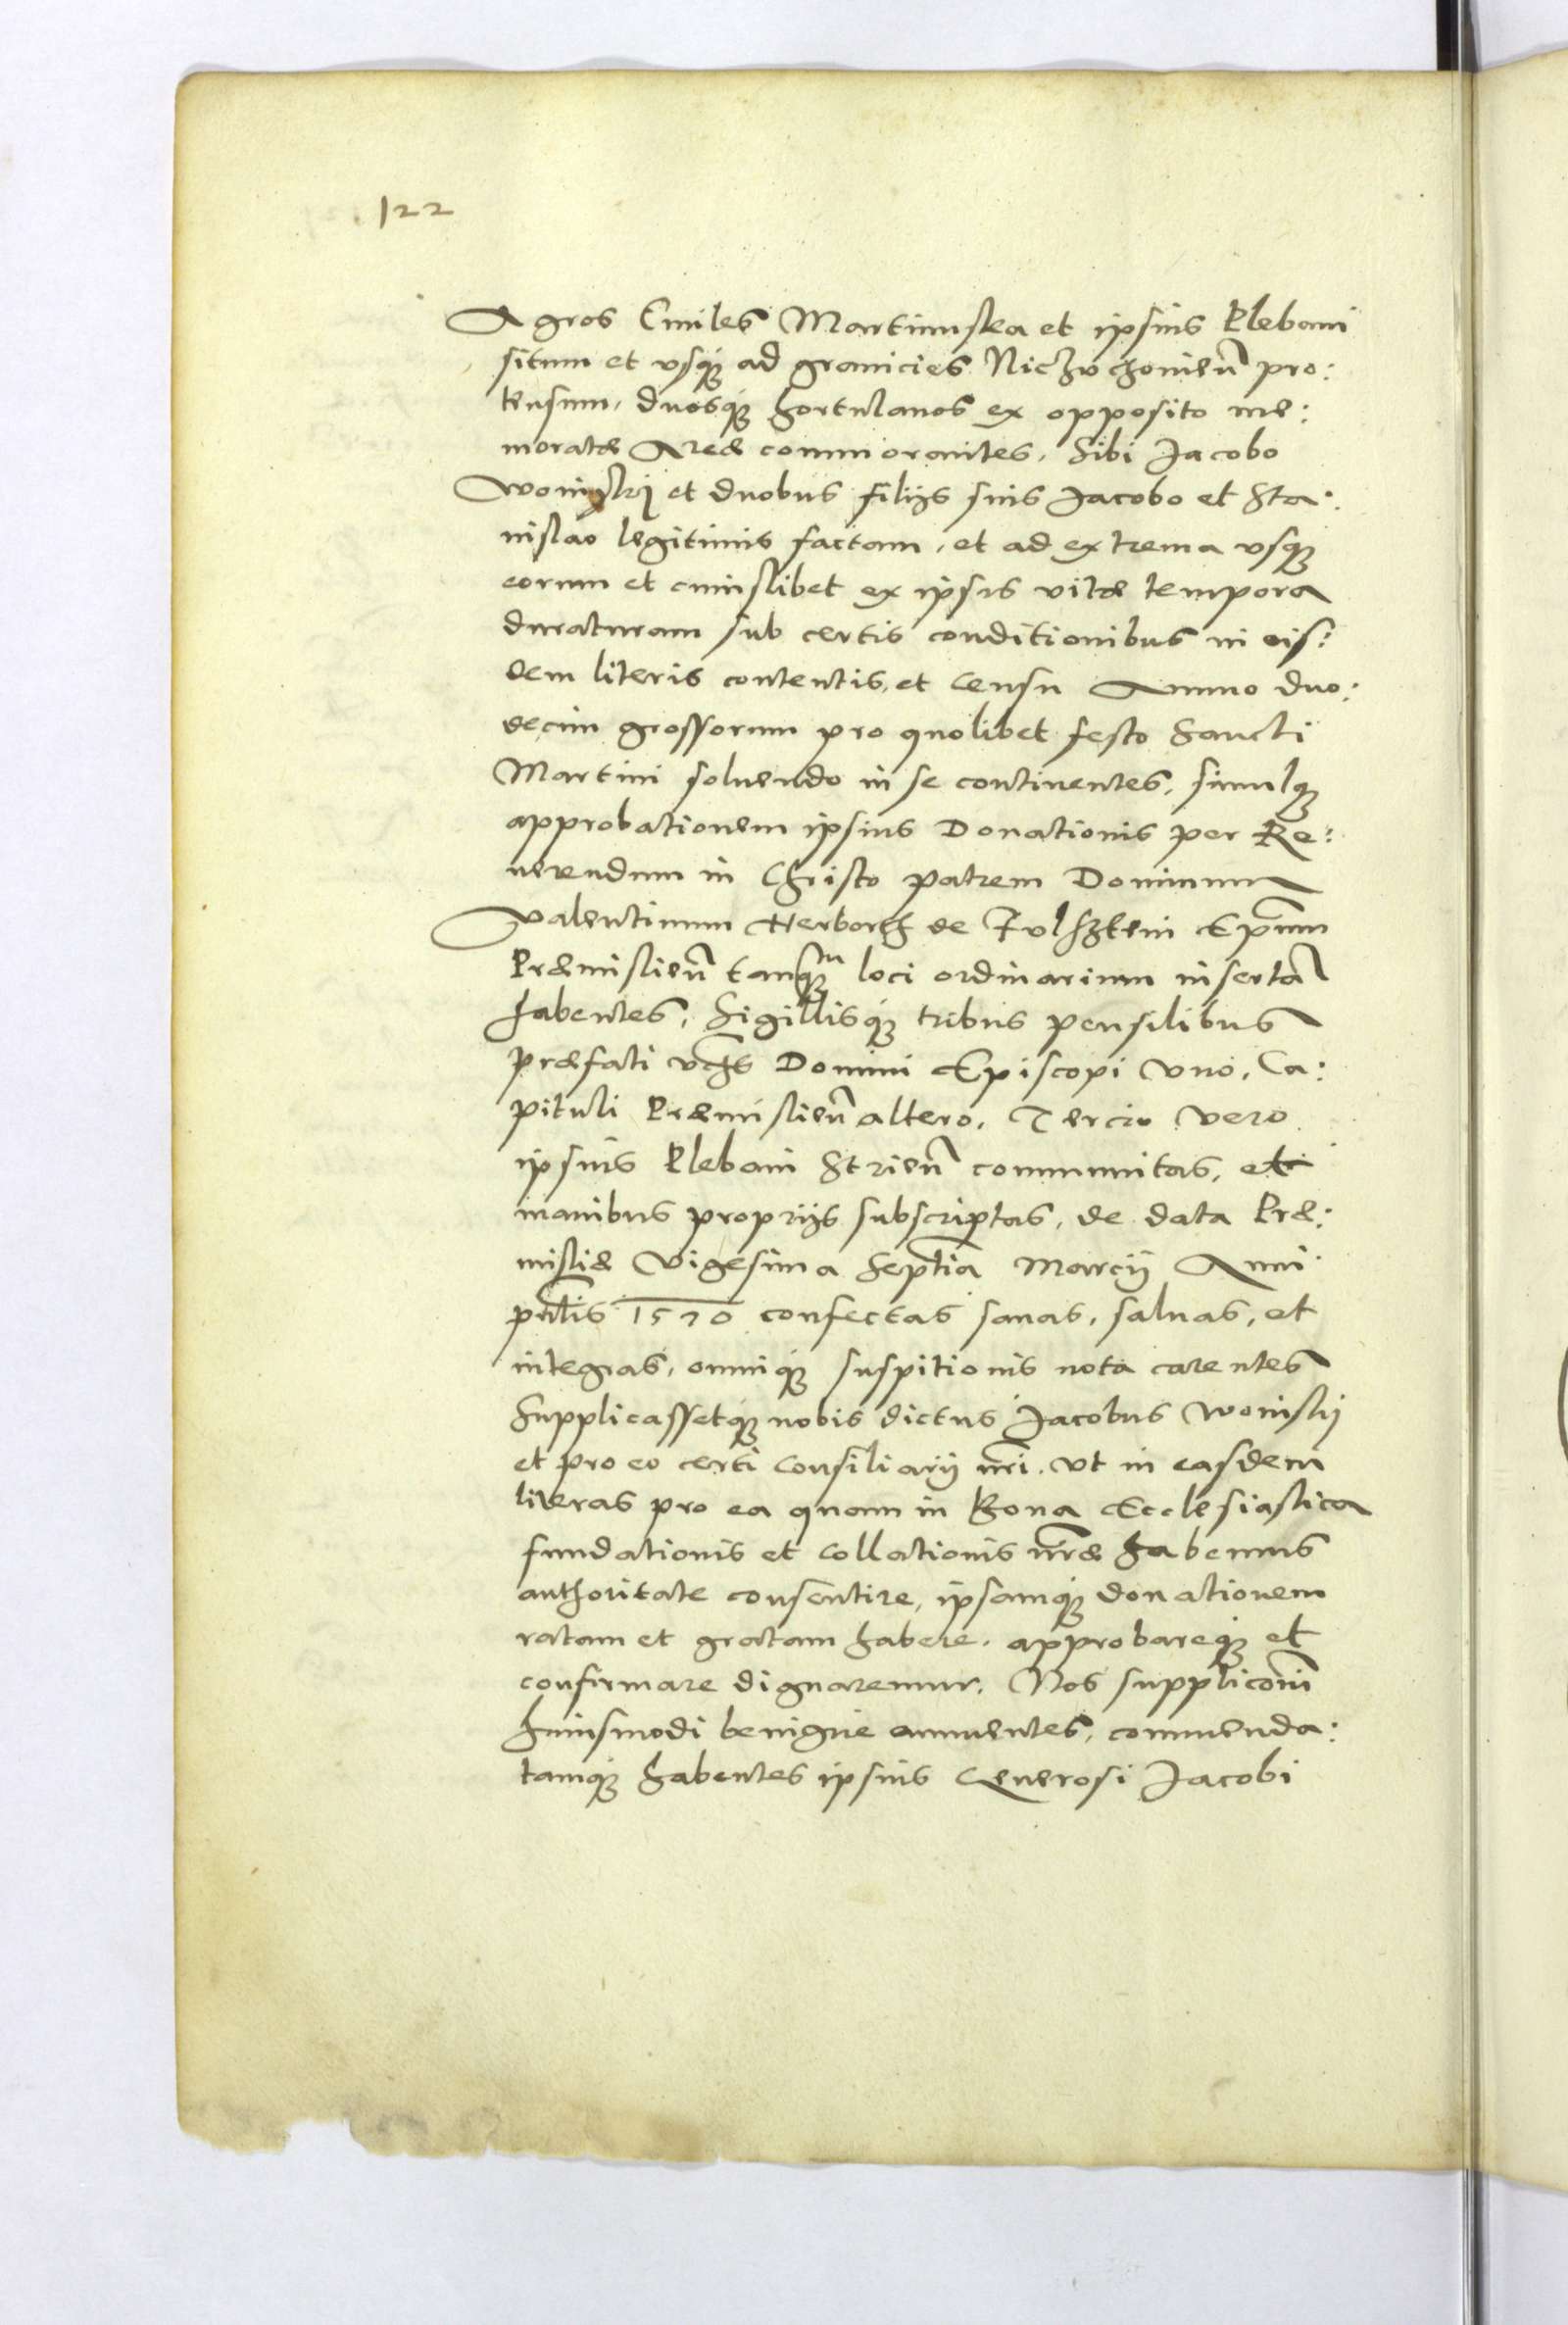 122
Agros Ciuiles Martinuska et ipsius Plebani
situm et vsq́ue ad granicies Niczvchouieñ pro:
tensum, duosq́ue hortulanos ex opposito me:
moratæ Areæ commorantes, Sibi Jacobo
et duobus filijs suis Jacobo et Sta:
nislao legitimis factam, et ad extrema vsq́ue
eorum et cuiuslibet ex ipsis vitæ tempora
duraturam sub certis conditionibus in eis:
dem literis contentis, et Censu Annuo duo:
decim grossorum pro quolibet festo Sancti
Martini soluendo in se continentes, simulq́ue
approbationem ipsius Donationis per Re:
uerendum in Christo patrem Dominum
Valentinum Herborth de Fulsztein Ep̃um
Præmislieñ tanq̃m loci ordinarium insertã
habentes, Sigillisq́ue tribus pensilibus
præfati Domini Episcopi Vno, Ca:
pituli Præmislieñ altero, Tercio Vero
ipsius Plebani Strieñ communitas, et
manibus proprijs subscriptas, de data Præ:
misliæ Vigesima Septĩa Marcij Anni
pñtis 1570 confectas sanas, saluas, et
integras, omniq́ue suspitionis nota carentes
Supplicassetq́ue nobis dictus Jacobus Wonislij
et pro eo certi Consiliarij nr̃i. Vt in easdem
literas pro ea quam in Bona Ecclesiastica
fundationis et Collationis nr̃æ habemus
authoritate consentire, ipsamq́ue donationem
ratam et gratam habere, approbareq́ue et
confirmare dignaremur. Nos supplicõni
huiusmodi benigne annuentes, commenda:
tamq́ue habentes ipsius Generosi Jacobi